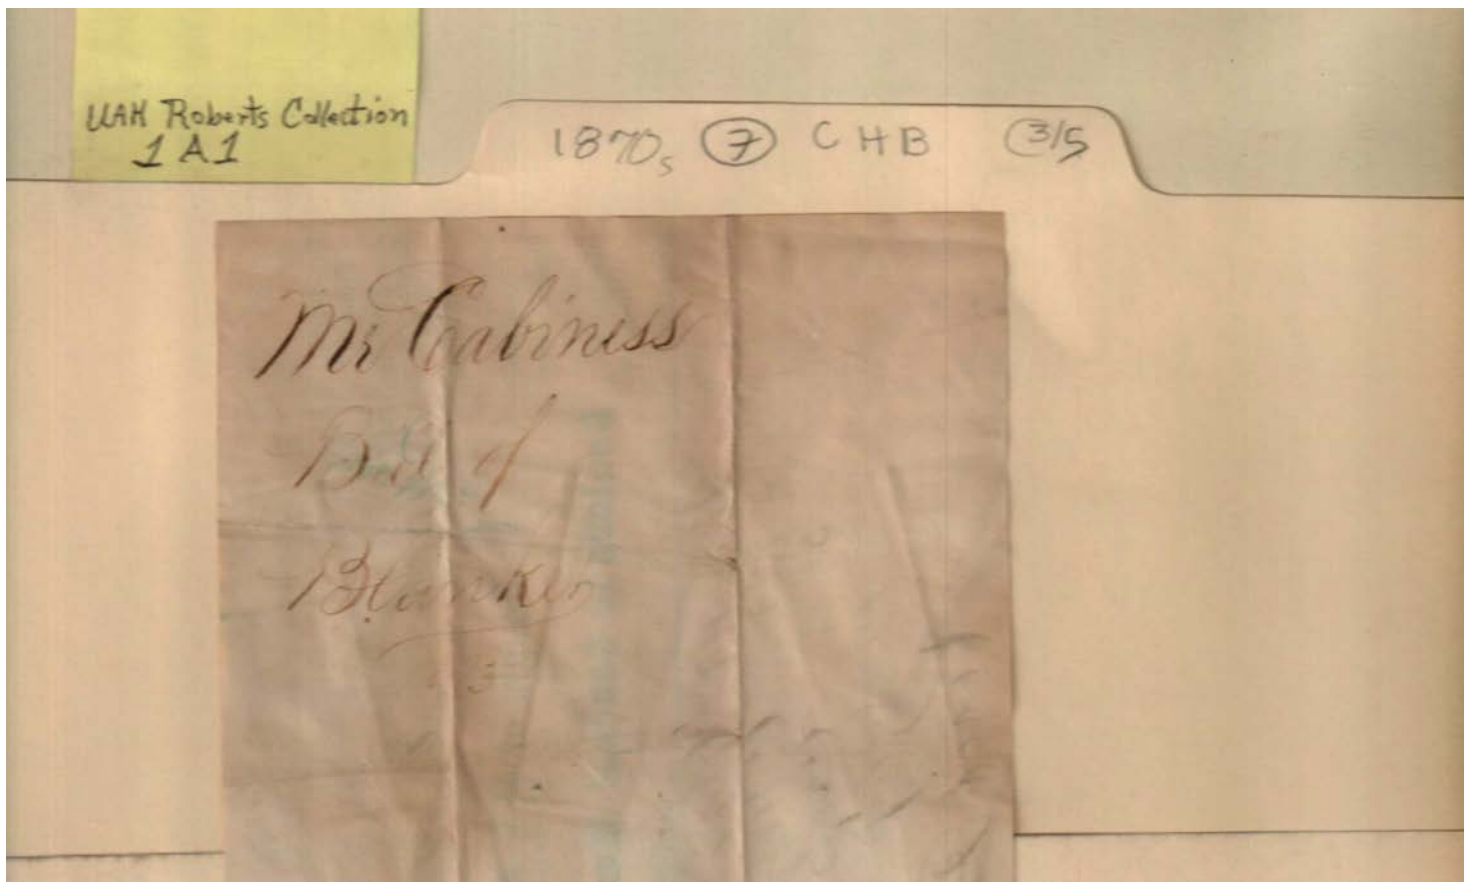 UAH Roberts Collection
1A1
1870s 7 CHB 3/5
Mr Cabiness
Bill of
Blanks